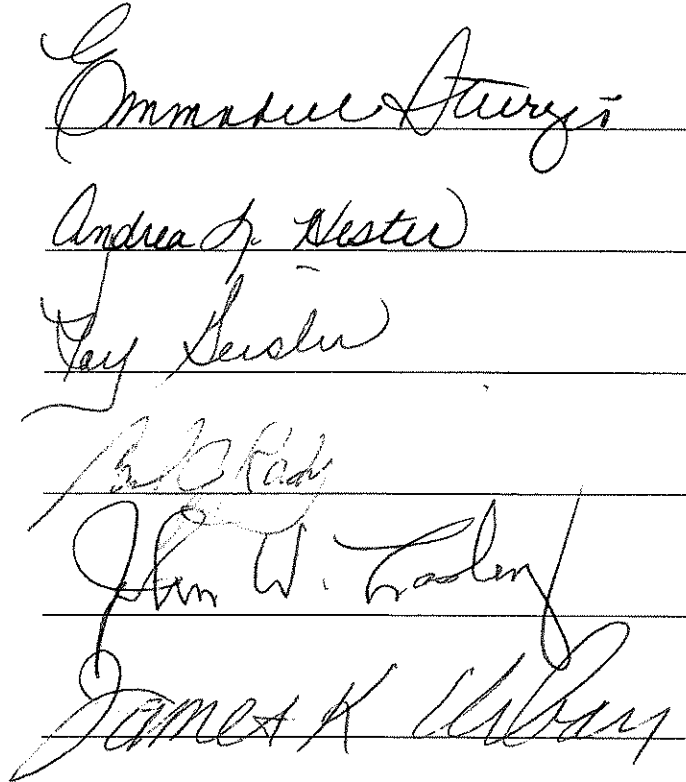 Emmanuel Sturgis
Andrea L. Hester
Fay Geisler
Rady
John W. Lasley
James K Urban